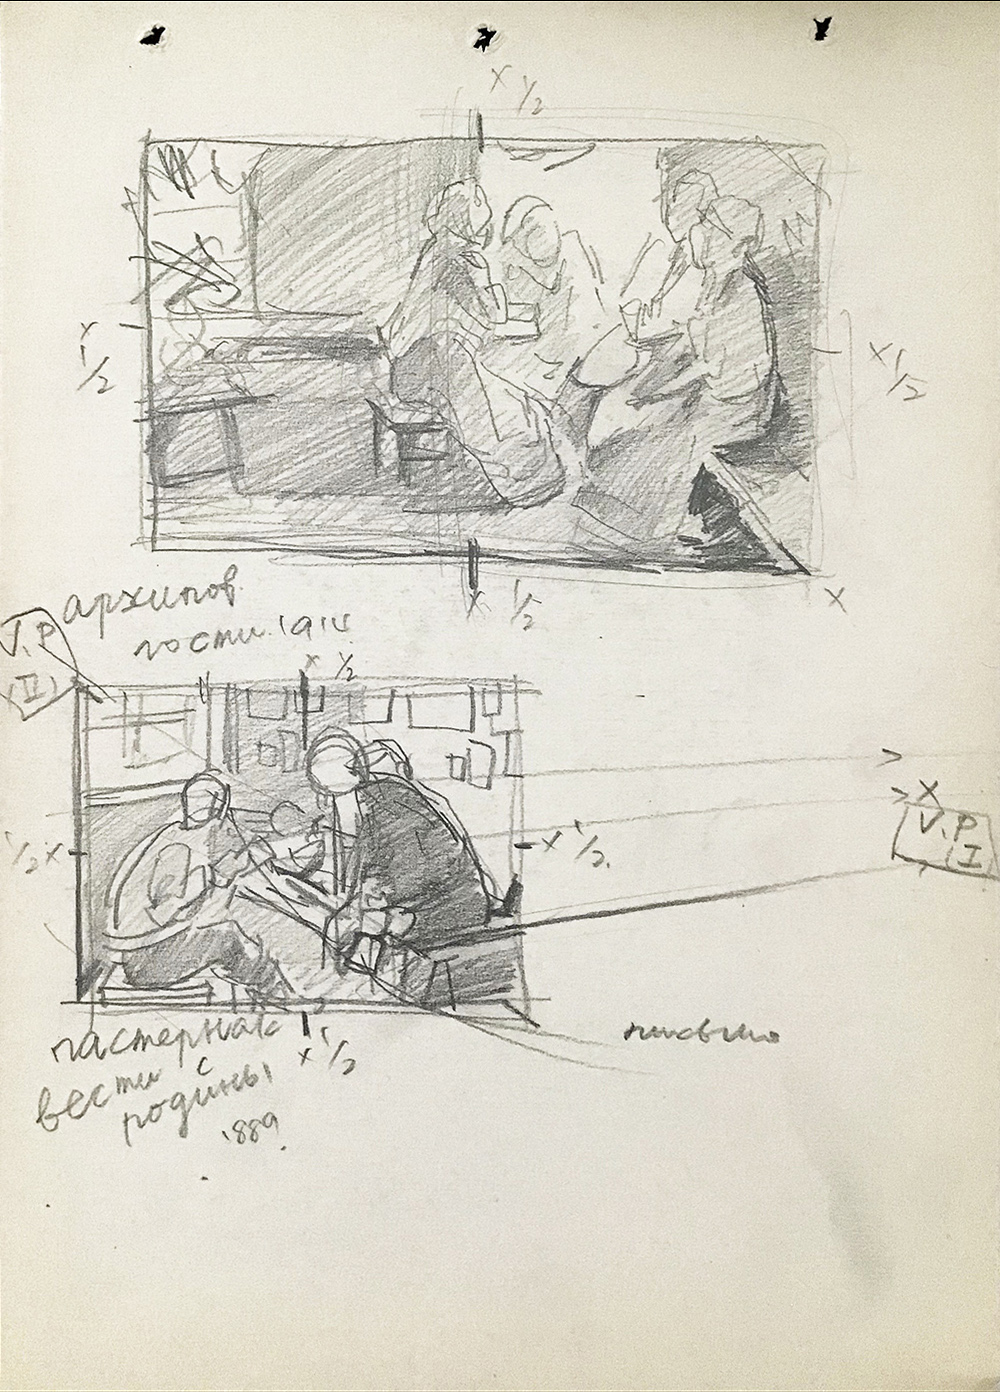 x ½
x
½
x ½
x ½
x
архипов
гости. 1914
V.P
(II)
x ½
x
V.P
I
½ x
x ½.
пастернак
x ½
вести
родины
1889.
письмо